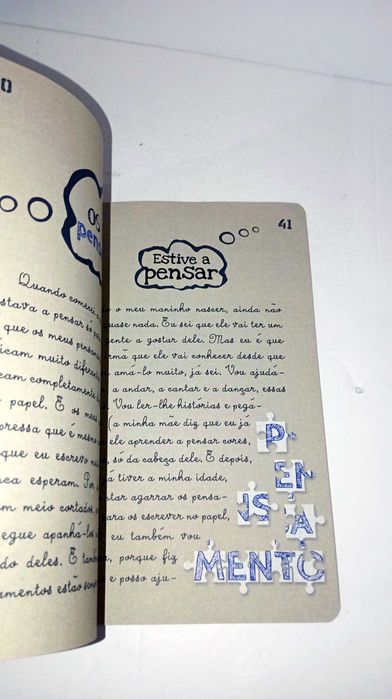 Os
pens
Quando comecei
stava a pensar só
que os meus pensam
icam muito diferen
cam completamente
papel. E os meus
pressa que é mesmo
que eu escrevo m
nca esperam. Por
m meio cortados,
segue apanhá-los
do deles. E també
amentos estão sem
41
Estive a
pensar
o meu maninho nascer, ainda não
quase nada. Eu sei que ele vai ter um
ente a gostar dele. Mas eu é que
rmã que ele vai conhecer desde que
amá-lo muito, já sei. Vou ajudá-
a andar, a cantar e a dançar, essas
Vou ler-lhe histórias e pega-
(a minha mãe diz que eu já
ele aprender a pensar cores,
, só da cabeça dele. E depois,
á tiver a minha idade,
ntar agarrar os pensa-
ara os escrever no papel,
eu também vou
, porque fiq
e posso aju-
P
EN
S
A
MENTO